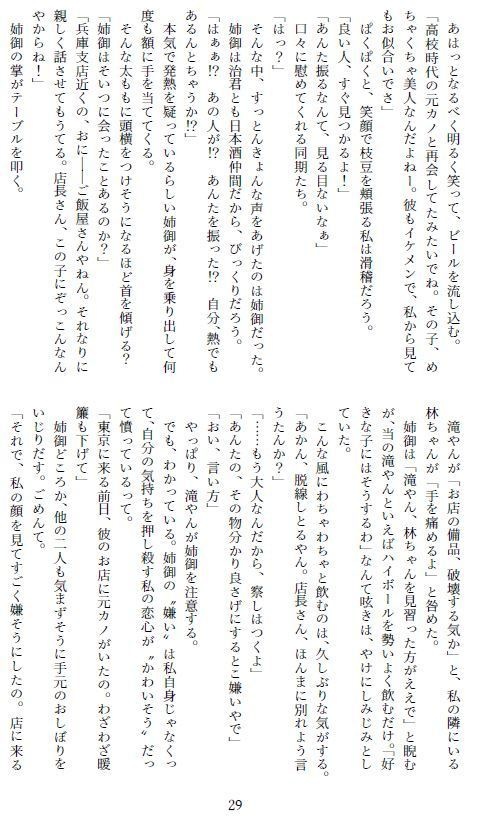 あはっとなるべく明るく笑って、ビールを流し込む。
「高校時代の元カノと再会してたみたいでね。その子、め
ちゃくちゃ美人なんだよねー。彼もイケメンで、私から見て
もお似合いでさ」
　ぱくぱくと、笑顔で枝豆を頬張る私は滑稽だろう。
「良い人、すぐ見つかるよ！」
「あんた振るなんて、見る目ないなぁ」
　口々に慰めてくれる同期たち。
「はっ？」
　そんな中、すっとんきょんな声をあげたのは姉御だった。
　姉御は治君とも日本酒仲間だから、びっくりだろう。
「はぁぁ!?　あの人が!?　あんたを振った!?　自分、熱でも
あるんとちゃうか!?」
　本気で発熱を疑っているらしい姉御が、身を乗り出して何
度も額に手を当ててくる。
　そんな太ももに頭横をつけそうになるほど首を傾げる？
「姉御はそいつに会ったことあるのか？」
「兵庫支店近くの、おに――ご飯屋さんやねん。それなりに
親しく話させてもうてる。店長さん、この子にぞっこんなん
やからね！」
　姉御の掌がテーブルを叩く。
　滝やんが「お店の備品、破壊する気か」と、私の隣にいる
林ちゃんが「手を痛めるよ」と咎めた。
　姉御は「滝やん、林ちゃんを見習った方がええで」と睨む
が、当の滝やんといえばハイボールを勢いよく飲むだけ。「好
きな子にはそうするわ」なんて呟きは、やけにしみじみとし
ていた。
　こんな風にわちゃわちゃと飲むのは、久しぶりな気がする。
「あかん、脱線しとるやん。店長さん、ほんまに別れよう言
うたんか？」
「……もう大人なんだから、察しはつくよ」
「あんたの、その物分かり良さげにするとこ嫌いやで」
「おい、言い方」
　やっぱり、滝やんが姉御を注意する。
　でも、わかっている。姉御の〝嫌い〟は私自身じゃなくっ
て、自分の気持ちを押し殺す私の恋心が〝かわいそう〟だっ
て憤っているって。
「東京に来る前日、彼のお店に元カノがいたの。わざわざ暖
簾も下げて」
　姉御どころか、他の二人も気まずそうに手元のおしぼりを
いじりだす。ごめんて。
「それで、私の顔を見てすごく嫌そうにしたの。店に来る
29